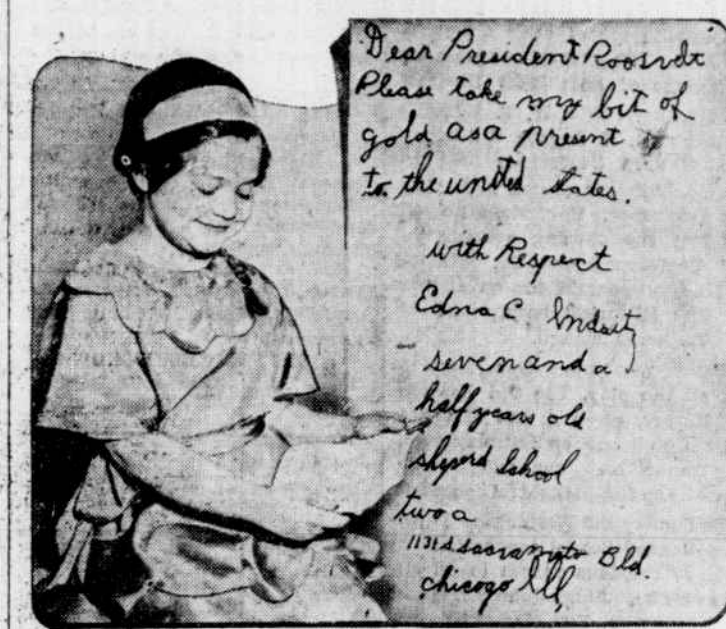 Dear President Roosvdt
Please take my bit of
gold as a present
to the united states.
with Respect
Edna C.
seven and a
half years old
sheperd School
two a
1131 S sacramento Bld.
chicogo Ill